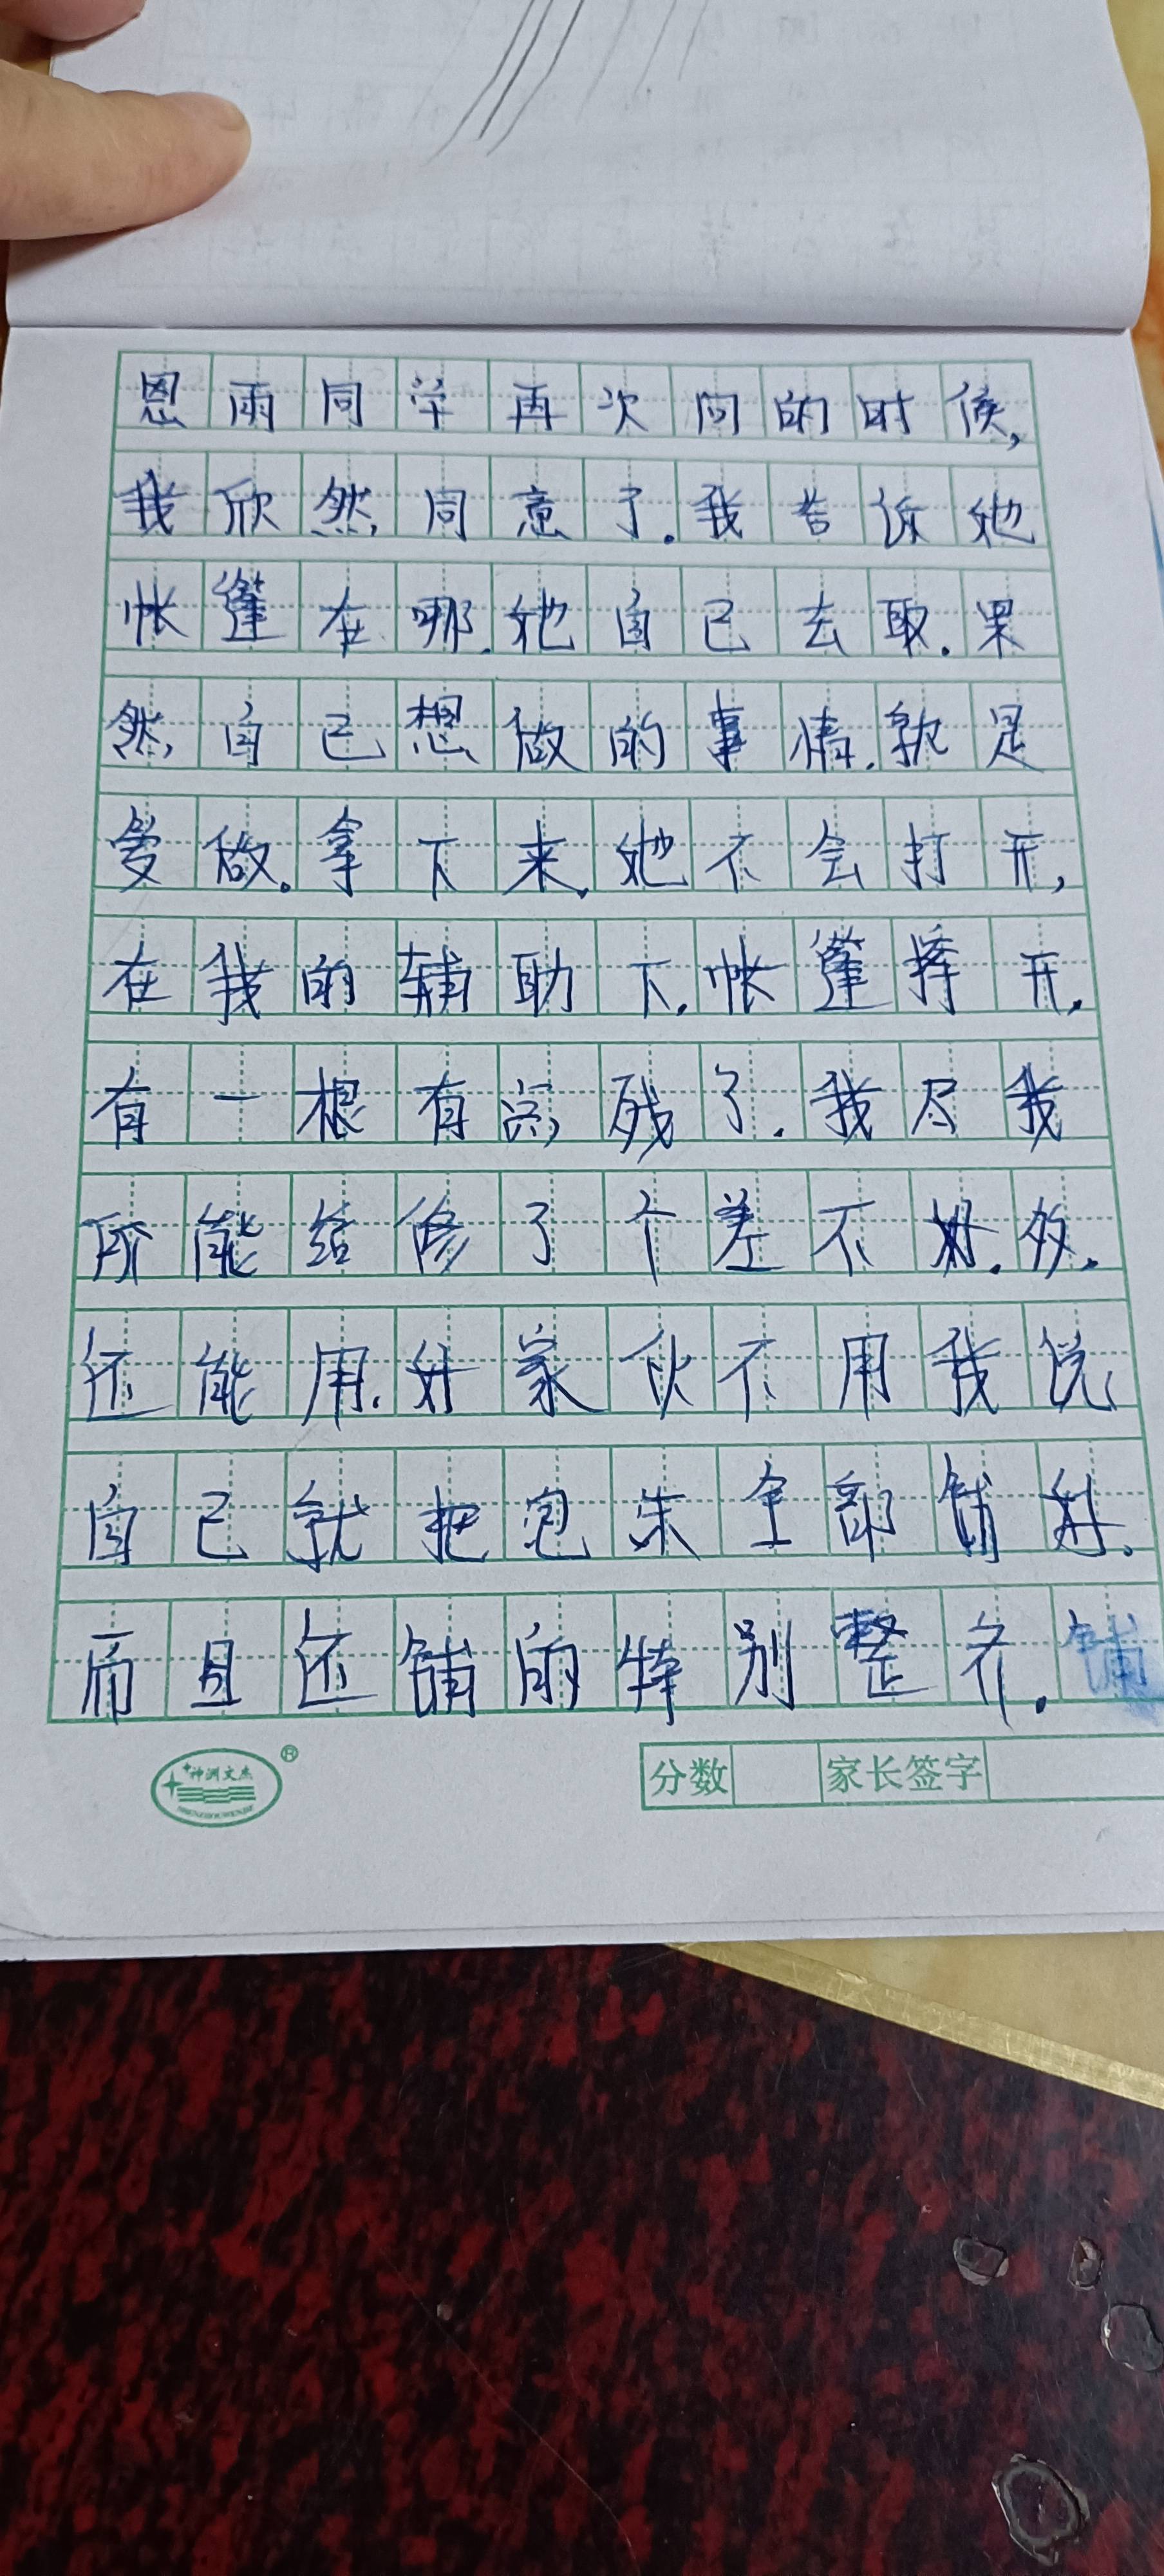 恩雨同学再次问的时候,
我欣然,同意了.我告诉她
帐篷在哪.她自己去取.果
然,自己想做的事情.就是
爱做.拿下来.她不会打开,
在我的辅助下.帐篷撑开.
有一根有点,残了.我尽我
所能给修了个差不好.多.
还能用.好家伙不用我说,
自己就把泡朱全部铺好.
而且还铺的特别整齐.铺
神洲文杰
SHENZHOUWENJIE
®
分数 家长签字